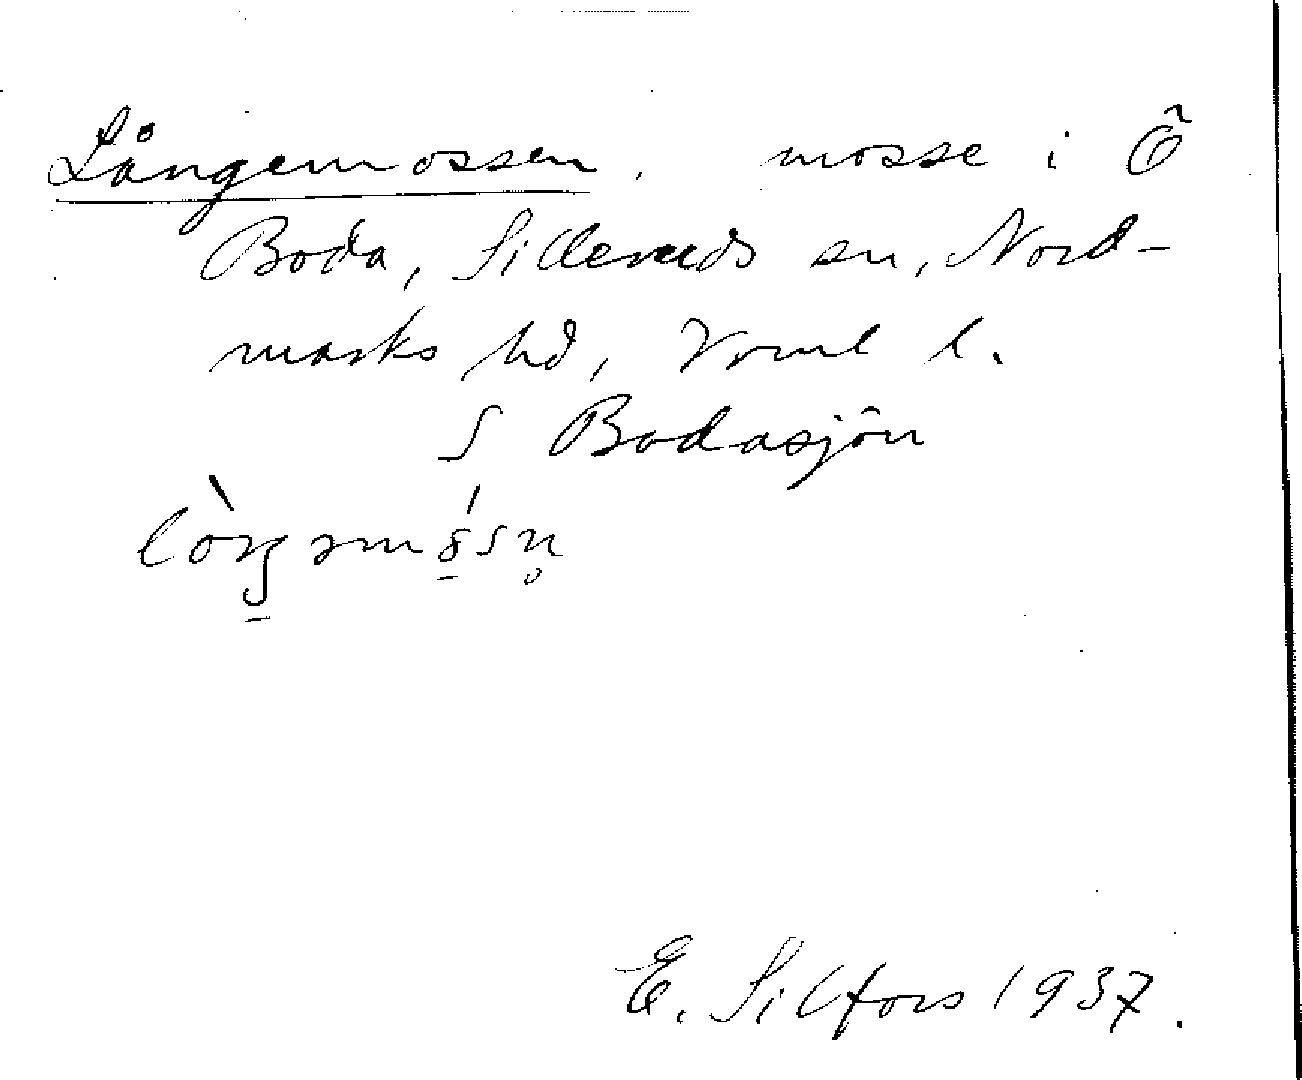 Långemossen, mosse i Ö
Boda, Silleruds sn, Nord-
marks hd, Vrml l.
S Bodasjön
E. Silfors 1937.